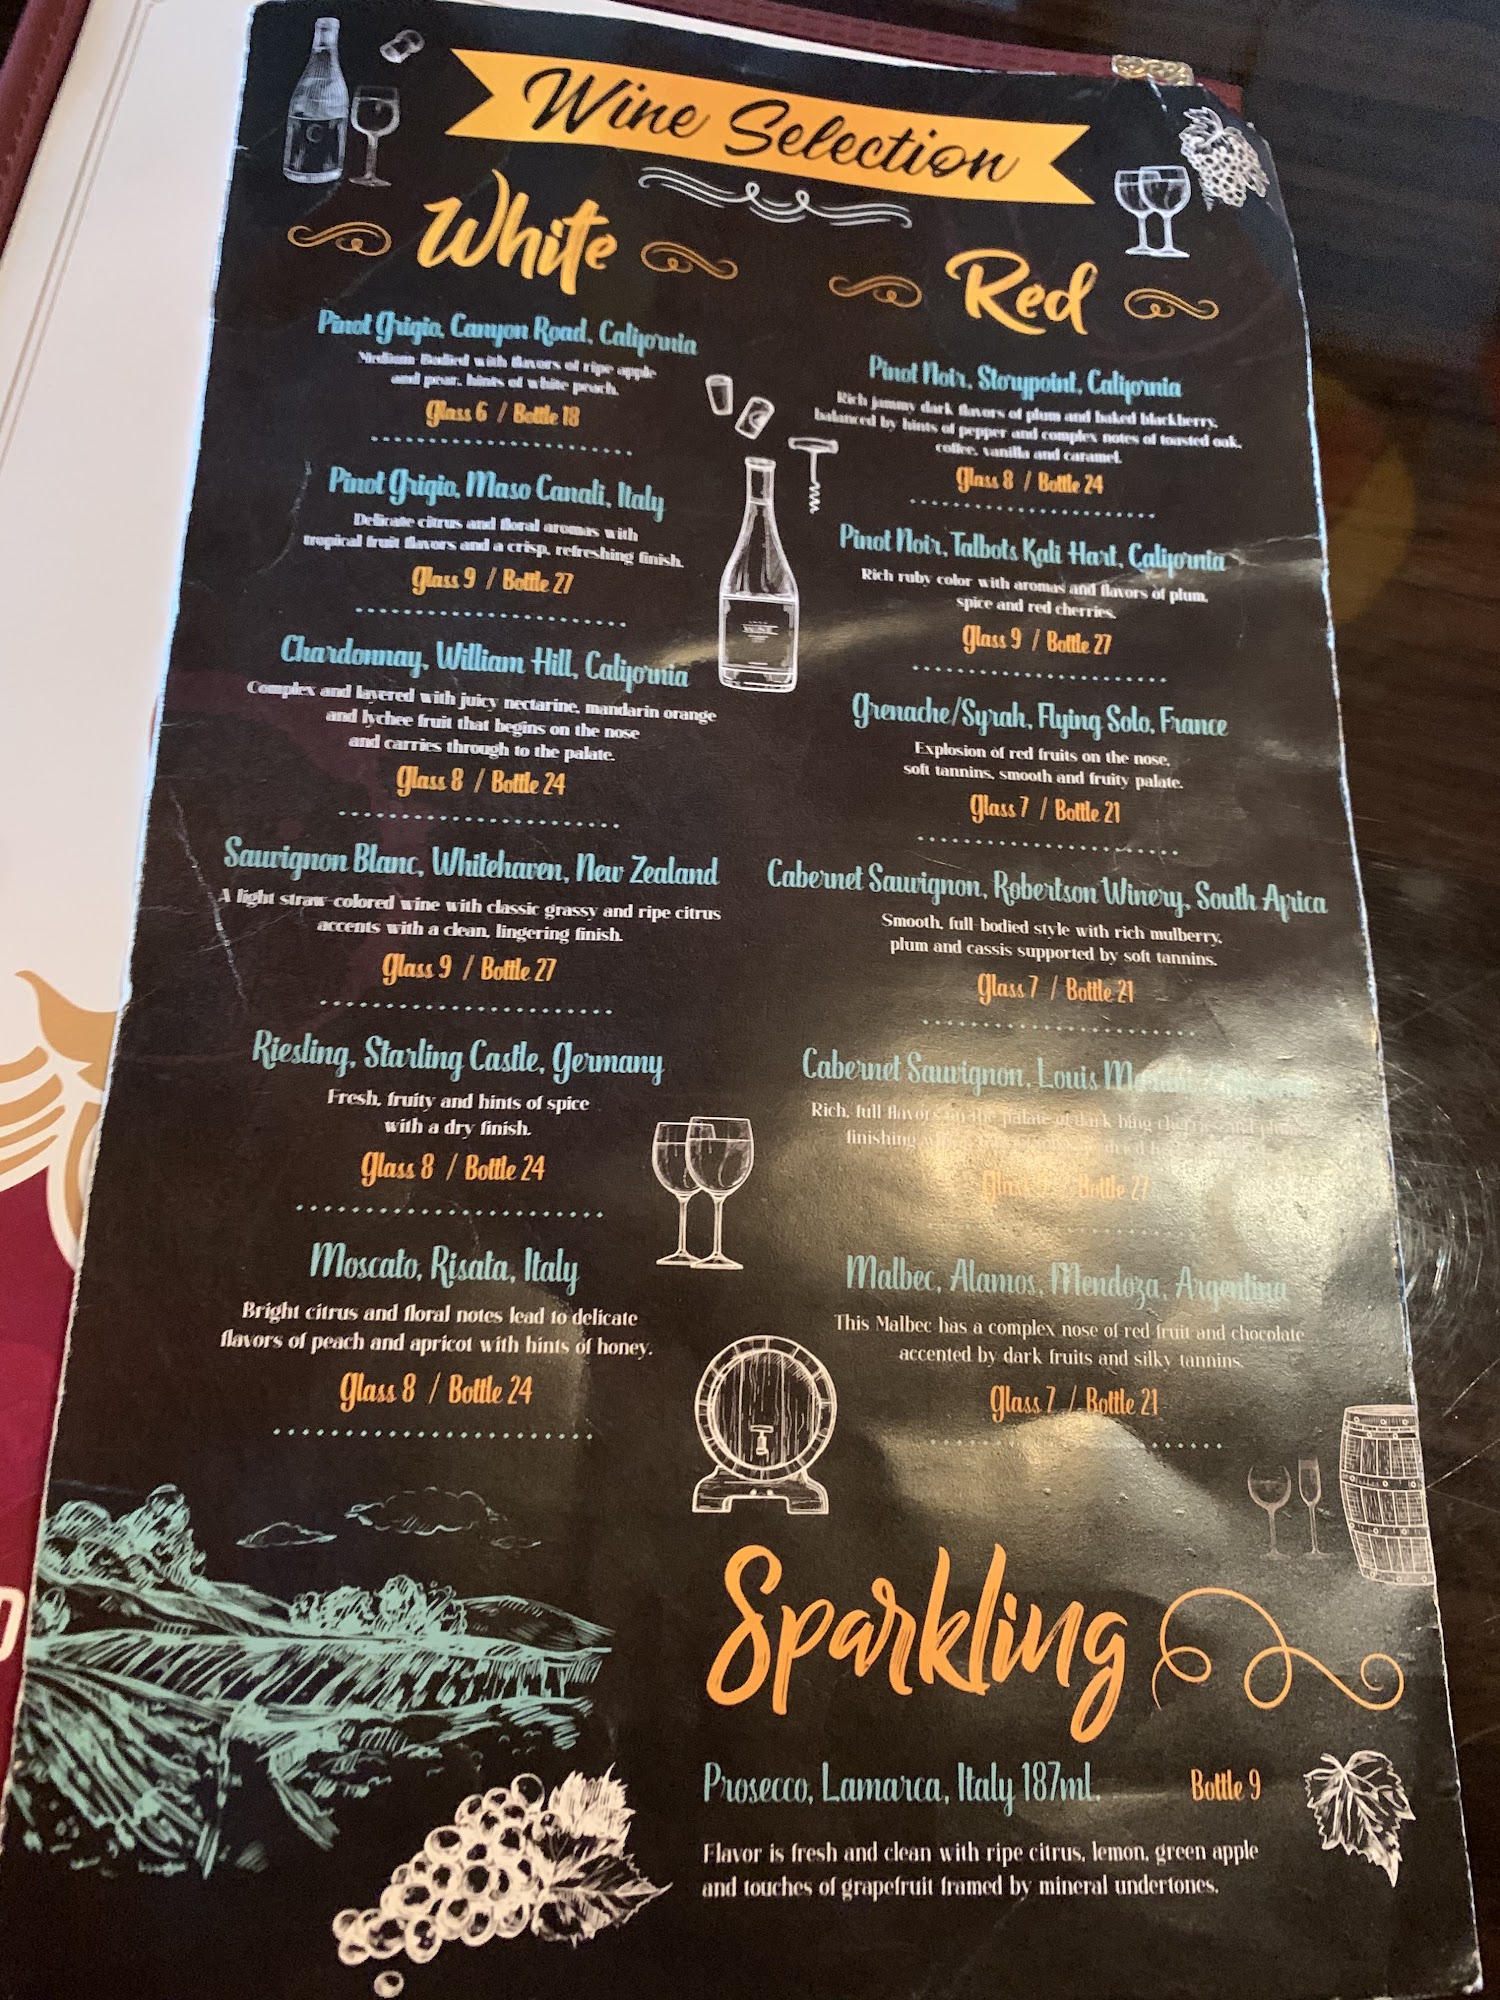 Wine Selection
White
Pinot Grigio, Canyon Road, California
Medium-Bodied with flavors of ripe apple
and pear, hints of white peach.
Glass 6 / Bottle 18
Pinot Grigio, Maso Canali, Italy
Delicate citrus and floral aromas with
tropical fruit flavors and a crisp, refreshing finish.
Glass 9 / Bottle 27
Chardonnay, William Hill, California
Complex and layered with juicy nectarine, mandarin orange
and lychee fruit that begins on the nose
and carries through to the palate.
Glass 8 / Bottle 24
Sauvignon Blanc, Whitehaven, New Zealand
A light straw-colored wine with classic grassy and ripe citrus
accents with a clean, lingering finish.
Glass 9 / Bottle 27
Riesling, Starling Castle, Germany
Fresh, fruity and hints of spice
with a dry finish.
Glass 8 / Bottle 24
Moscato, Risata, Italy
Bright citrus and floral notes lead to delicate
flavors of peach and apricot with hints of honey.
Glass 8 / Bottle 24
Red
Pinot Noir, Storypoint, California
Rich jammy dark flavors of plum and baked blackberry,
balanced by hints of pepper and complex notes of toasted oak,
coffee, vanilla and caramel.
Glass 8 / Bottle 24
Pinot Noir, Talbots Kali Hart, California
Rich ruby color with aromas and flavors of plum,
spice and red cherries.
Glass 9 / Bottle 27
Grenache/Syrah, Flying Solo, France
Explosion of red fruits on the nose,
soft tannins, smooth and fruity palate.
Glass 7 / Bottle 21
Cabernet Sauvignon, Robertson Winery, South Africa
Smooth, full-bodied style with rich mulberry,
plum and cassis supported by soft tannins.
Glass 7 / Bottle 21
Cabernet Sauvignon, Louis
Rich, full flavors on the palate of dark bing
finishing dried
Glass / Bottle 27
Malbec, Alamos, Mendoza, Argentina
This Malbec has a complex nose of red fruit and chocolate
accented by dark fruits and silky tannins.
Glass 7 / Bottle 21
Sparkling
Prosecco, Lamarca, Italy 187ml. Bottle 9
Flavor is fresh and clean with ripe citrus, lemon, green apple
and touches of grapefruit framed by mineral undertones.